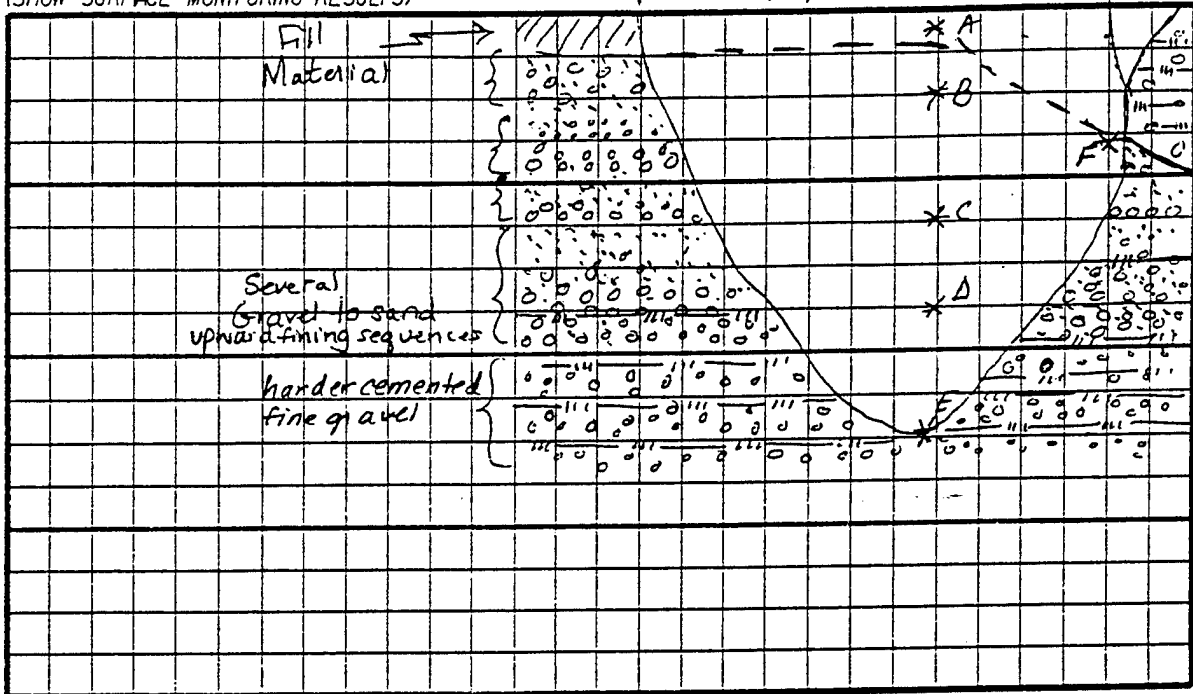 (SHOW SURFACE MONITORING RESULTS)
Fill
Material
A
B
F
C
D
Several
Gravel to sand
upward fining sequences
E
harder cemented
fine gravel